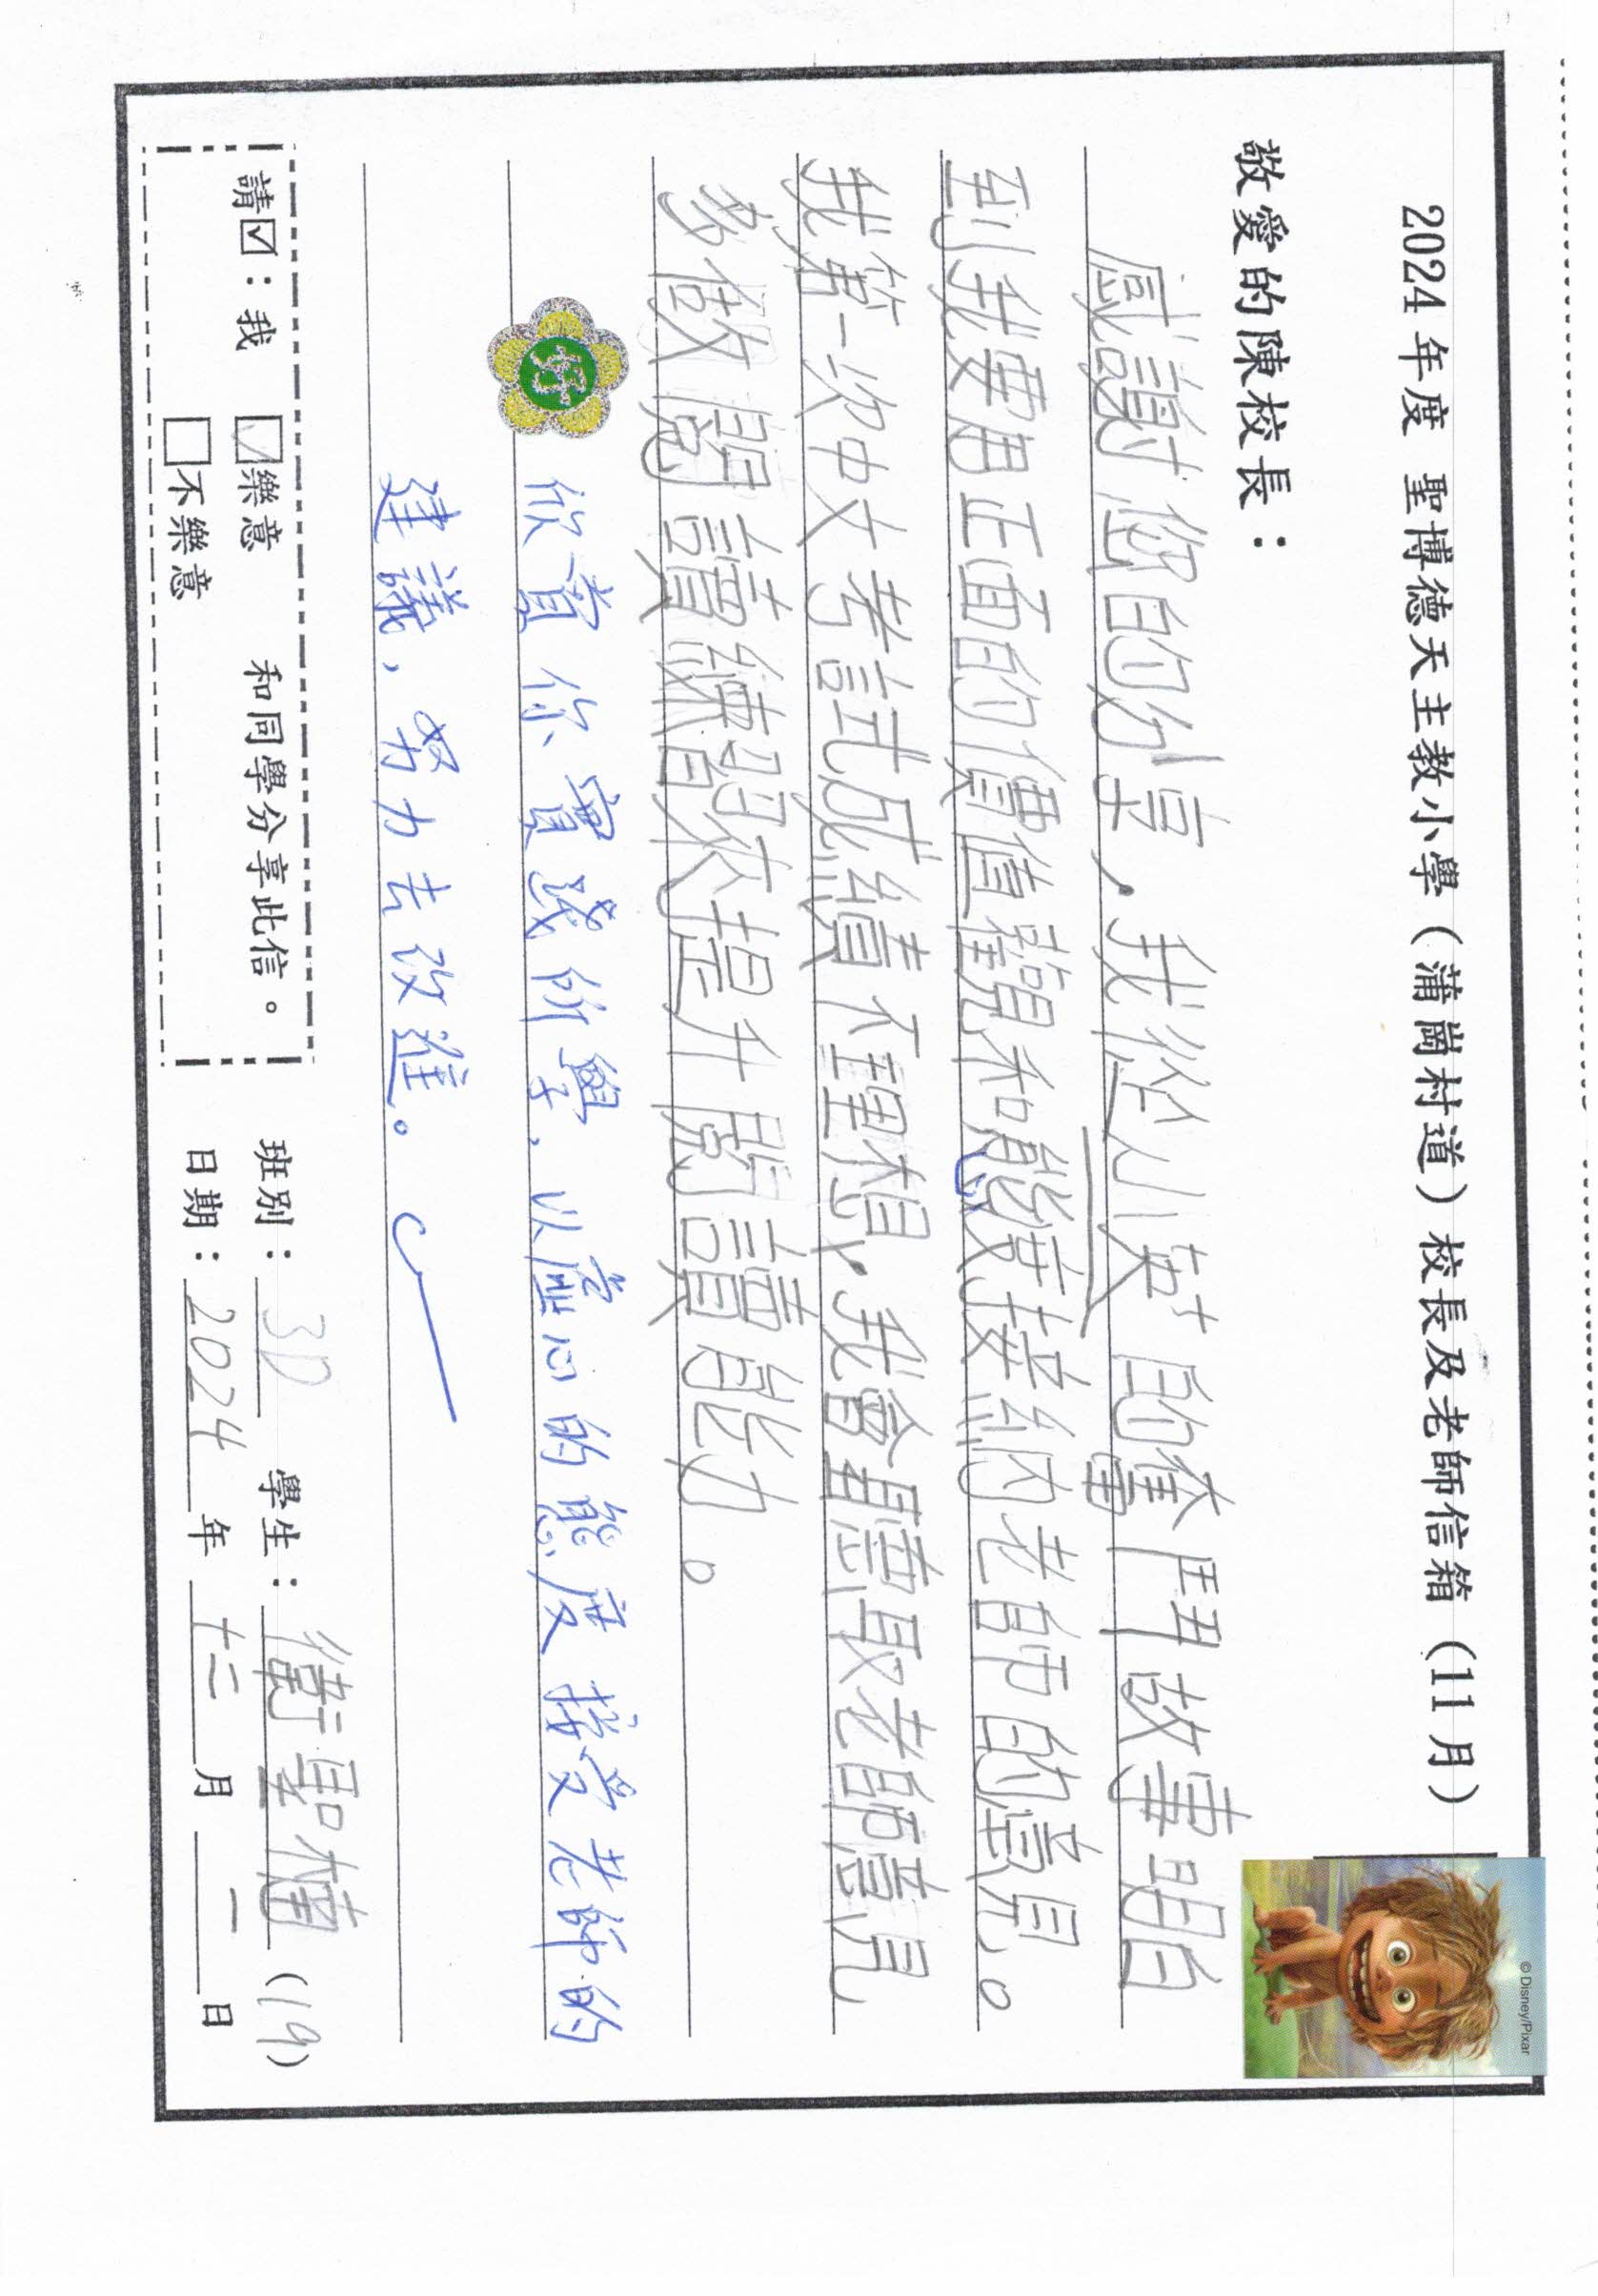 2024年度 聖博德天主教小學（蒲崗村道）校長及老師信箱（11月）
©Disney/Pixar
敬愛的陳校長：
感謝您的分享，我從小英的奮鬥故事明白
到我要用正面的價值觀和態度接納老師的意見。
我第一次中文考試成績不理想，我會聽取老師意見
多做閱讀練習來提升閱讀能力。
欣賞你實踐所學，以虛心的態度接受老師的
建議，努力去改進。
請☑：我 ☑樂意 和同學分享此信。
□不樂意
班別：3D 學生：衛(19)
日期：2024年十二月二日